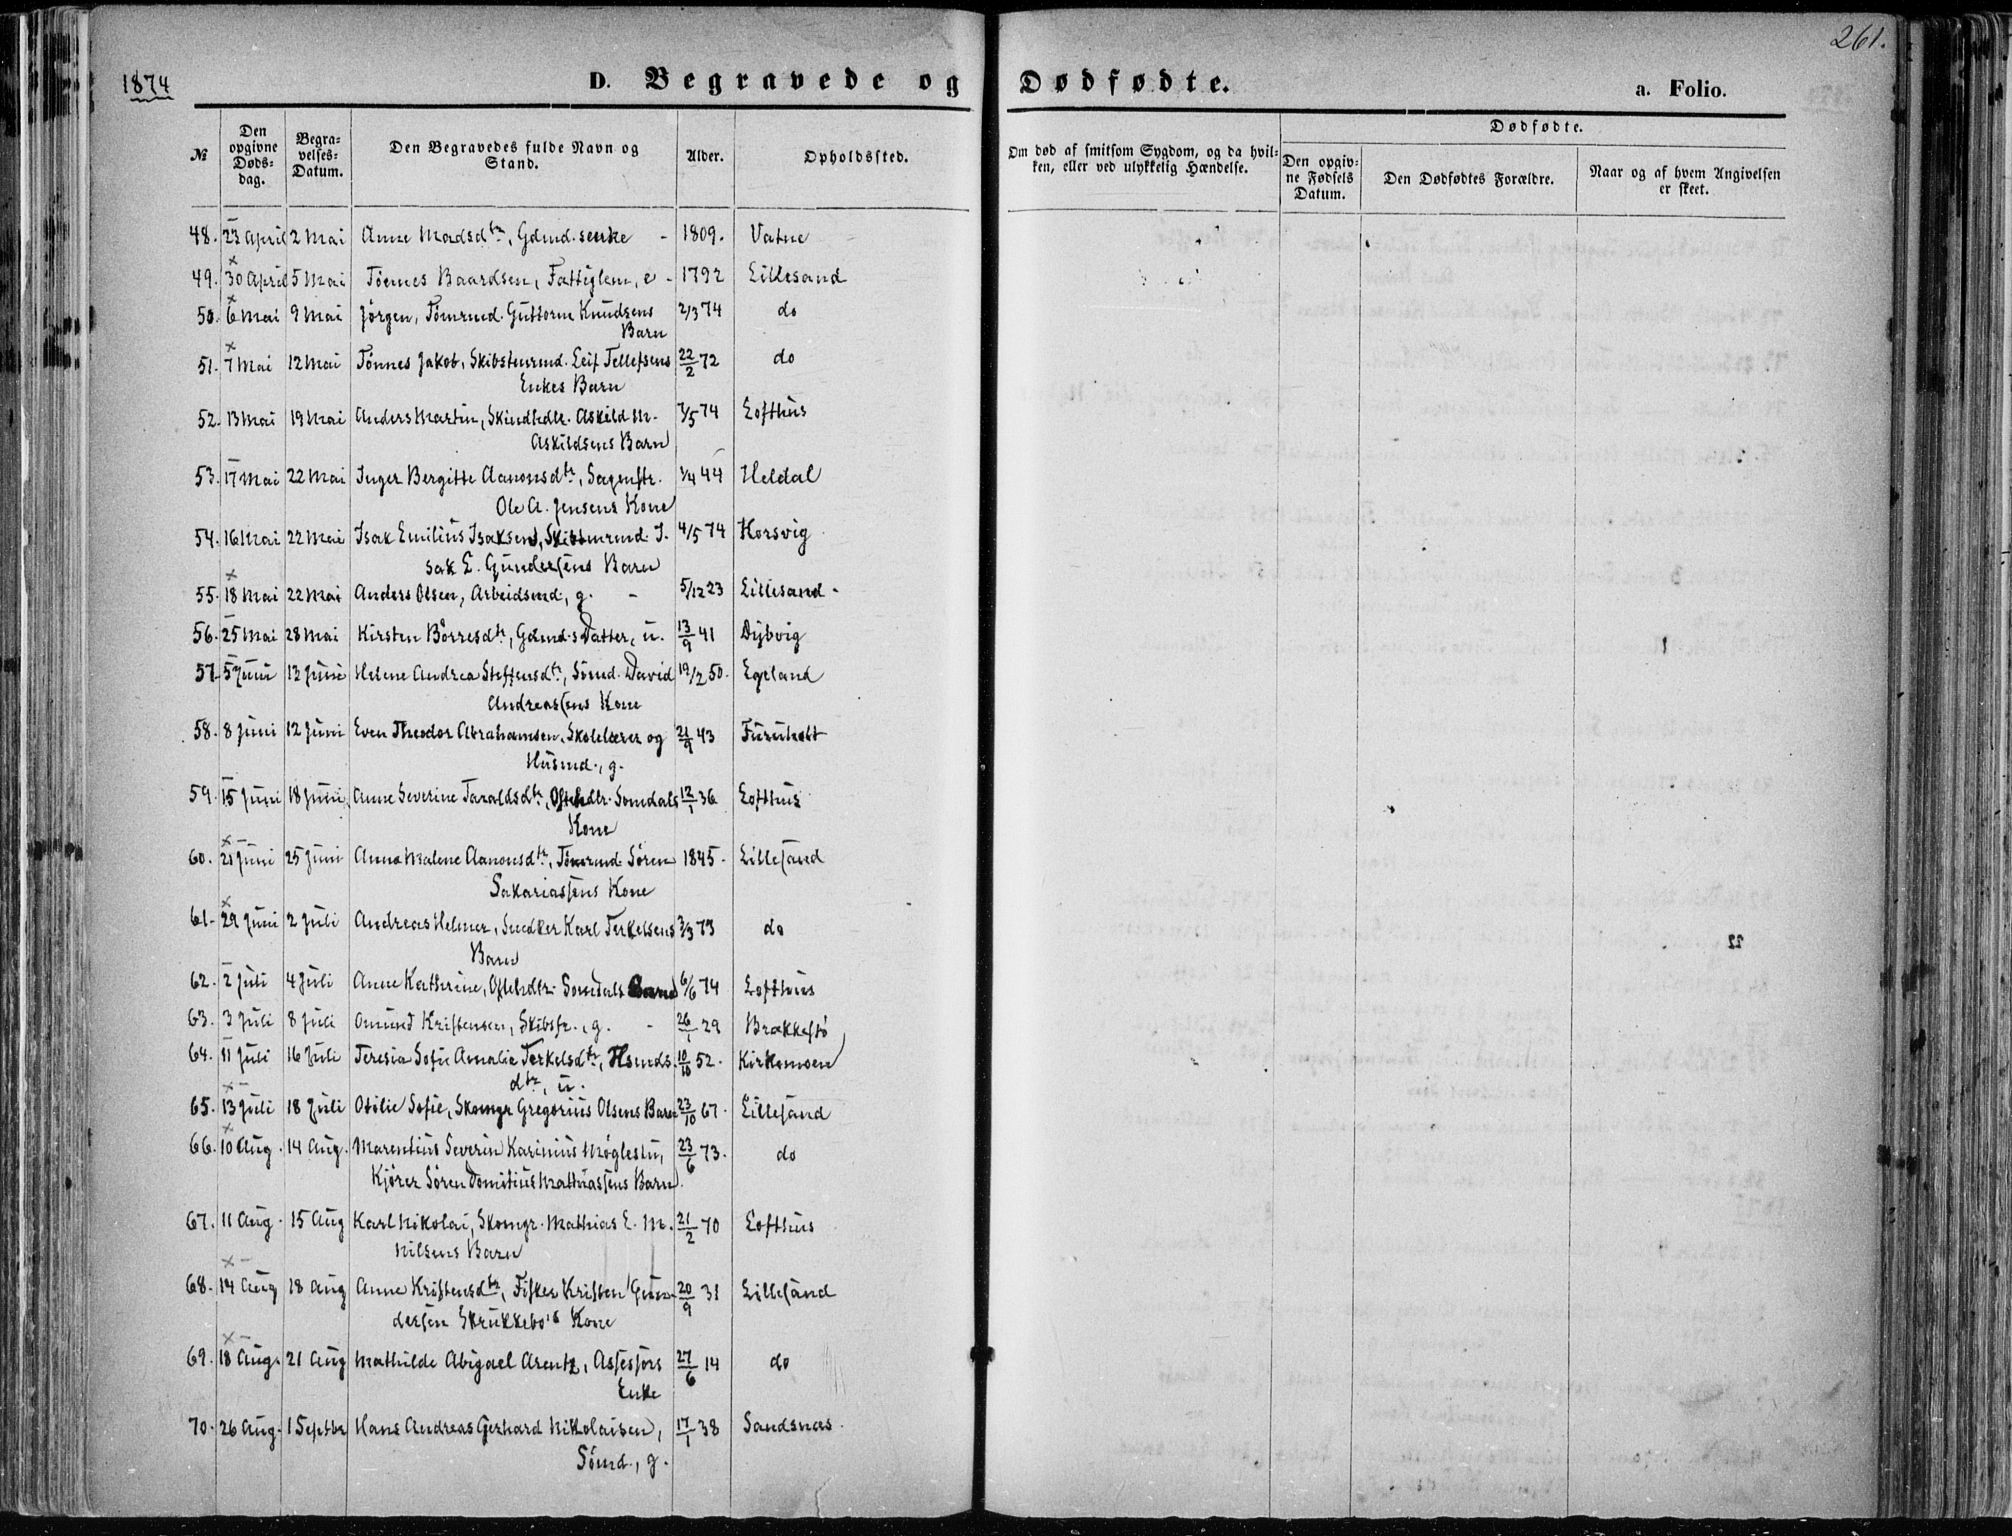 261.
1874
D. Begravede og Dødfødte.
a. Folio.
№
Den opgivne Døds-dag.
Begra-velses-Datum.
Den Begravedes fulde Navn og Stand.
Alder.
Opholdssted.
Om død af smitsom Sygdom, og da hvil-ken, eller ved ulykkelig Hændelse.
Dødfødte.
Den opgiv-ne Fødsels Datum.
Den Dødfødtes Forældre.
Naar og af hvem Angivelsen er skeet.
48. 23 April 2 Mai Anne Madsdtr, Gdmd.senke - 1809. Vatne
49. 30 April 5 Mai Tønnes Baardsen, Fattiglem, e - 1792 Lillesand
50. 6 Mai 9 Mai Jørgen, Tømrmd. Guttorm Knudsens 2/3 74 do
Barn
51. 7 Mai 12 Mai Tønnes Jakob, Skibstmrmd. Leif Tellefsens 22/2 72 do
Enkes Barn
52. 13 Mai 19 Mai Anders Martin, Skindhdlr. Askild M. 7/5 74 Lofthus
Askildsens Barn
53. 17 Mai 22 Mai Inger Bergitte Aanonsdtr, Sagmstr. 1/4 44 Heldal
Ole A. Jensens Kone
54. 16 Mai 22 Mai Isak Emilius Isaksen, Skibtmrmd. I- 4/5 74 Korsvig
sak E. Gundersens Barn
55. 18 Mai 22 Mai Anders Olsen, Arbeidsmd, g. - 5/12 23 Lillesand -
56. 25 Mai 28 Mai Kirsten Börresdtr, Gdmd.s Datter, u. 13/9 41 Dybvig
57. 5 Juni 12 Juni Helene Andrea Steffensdtr, Sömd. David 19/2 50. Egeland
Andreassens Kone
58. 8 Juni 12 Juni Even Theodor Abrahamsen, Skolelærer og 21/9 43 Furuholt
Husmd., g.
59. 15 Juni 18 Juni Anne Severine Taraldsdtr, Ostehdlr. Somdals 12/1 36 Lofthus
Kone
60. 21 Juni 25 Juni Anna Malene Aanonsdtr, Tömrmd. Sören 1845. Lillesand
Sakariassens Kone
61. 29 Juni 2 Juli Andreas Helmer, Snedker Karl Terkelsens 3/3 73 do
Barn
62. 2 Juli 4 Juli Anne Kathrine, Ostehdlr. Somdals Barn 6/6 74 Lofthus
63. 3 Juli 8 Juli Omund Kristensen, Skibsfr., g. - 26/1 29 Brækkestö
64. 11 Juli 16 Juli Teresia Sofie Amalie Terkelsdtr, Hsmds. 10/10 52. Kirkemoen
dtr, u.
65. 13 Juli 18 Juli Otilie Sofie, Skomgr Gregorius Olsens Barn 23/10 67. Lillesand
66. 10 Aug. 14 Aug. Marentius Severin Karinius Møglestu, 23/6 73. do
Kjörer Sören Domitius Mathiassens Barn.
67. 11 Aug. 15 Aug Karl Nikolai, Skomgr. Mathias E. M. 21/2 70 Lofthus
Nilsens Barn
68. 14 Aug 18 Aug Anne Kristensdtr, Fisker Kristen Gun- 20/9 31 Lillesand
dersen Skrukkebo's Kone
69. 18 Aug. 21 Aug Mathilde Abigael Arentz, Assessors 27/6 14 do
Enke
70. 26 Aug. 1 Septbr Hans Andreas Gerhard Nikolaisen, 17/1 38 Sandsnæs.
Sömd., g.